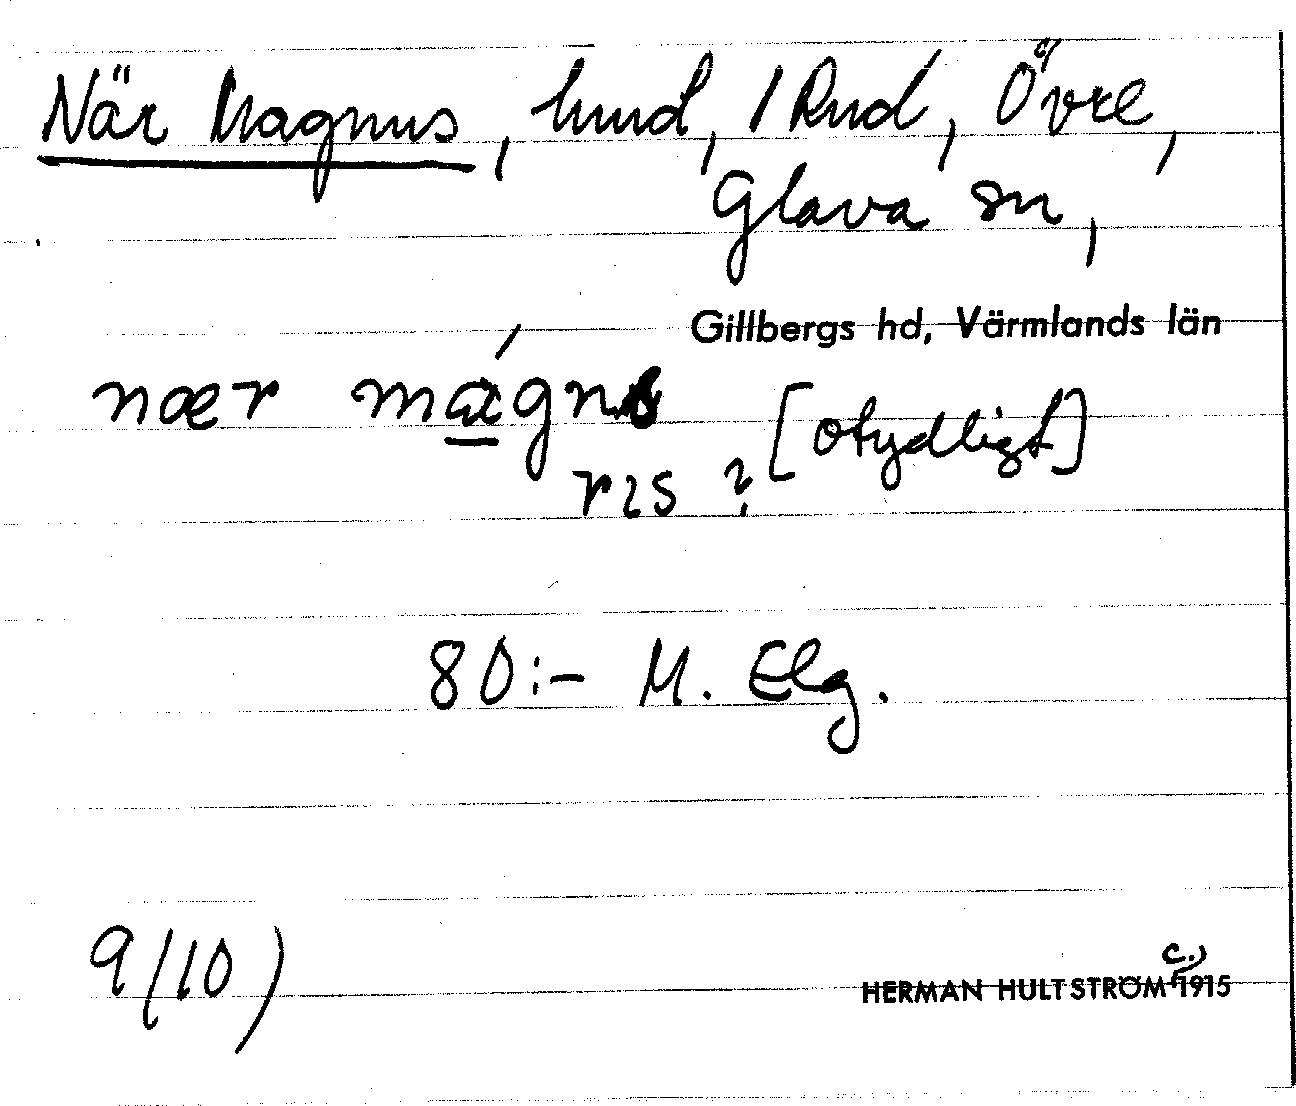 När Magnus, lund, / Rud, Övre,
Glava sn,
Gillbergs hd, Värmlands län
nær mágn
[otydligt]
rıs ?
80:- M. Elg.
9/10)
HERMAN HULTSTRÖM c.) 1915